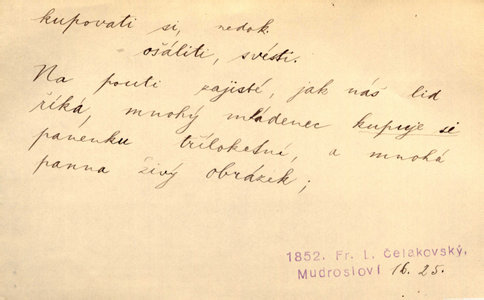 kupovati si, nedok.
ošáliti, svésti.
Na pouti zajisté, jak náš lid
říká, mnohý mládenec kupuje si
panenku tříloketní, a mnohá
panna živý obrázek;
1852. Fr. L. Čelakovský,
Mudrosloví 16. 25.